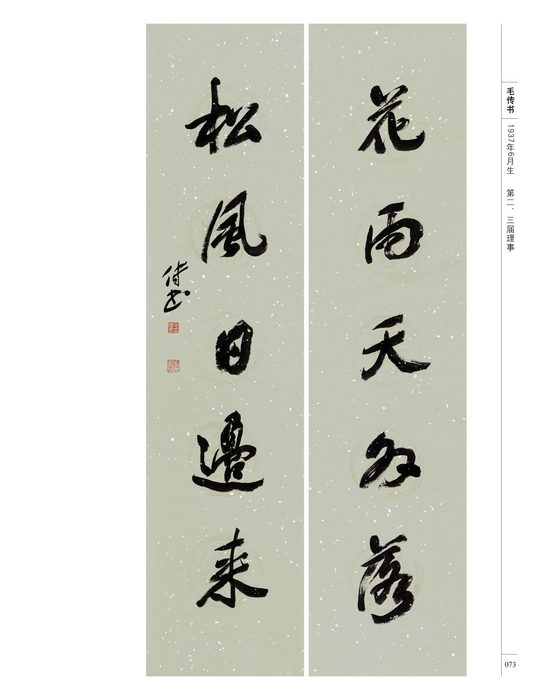 花雨天外落
松风日邊来
传书
毛传书
1937年6月生 第二、三届理事
073